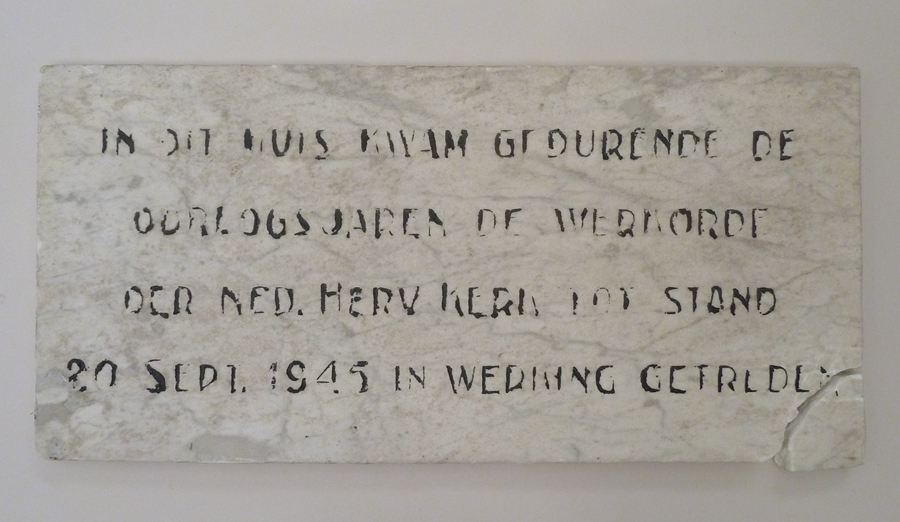 IN DIT HUIS KWAM GEDURENDE DE
OORLOGSJAREN DE WERKORDE
DER NED. HERV KERK TOT STAND
20 SEPT. 1945 IN WERKING GETREDEN.